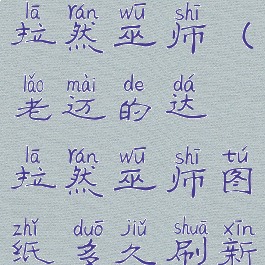 lā rán wū shī
拉然巫师（
lǎo mài de dá
老迈的达
lā rán wū shī tú
拉然巫师图
zhǐ duō jiǔ shuā xīn
纸多久刷新